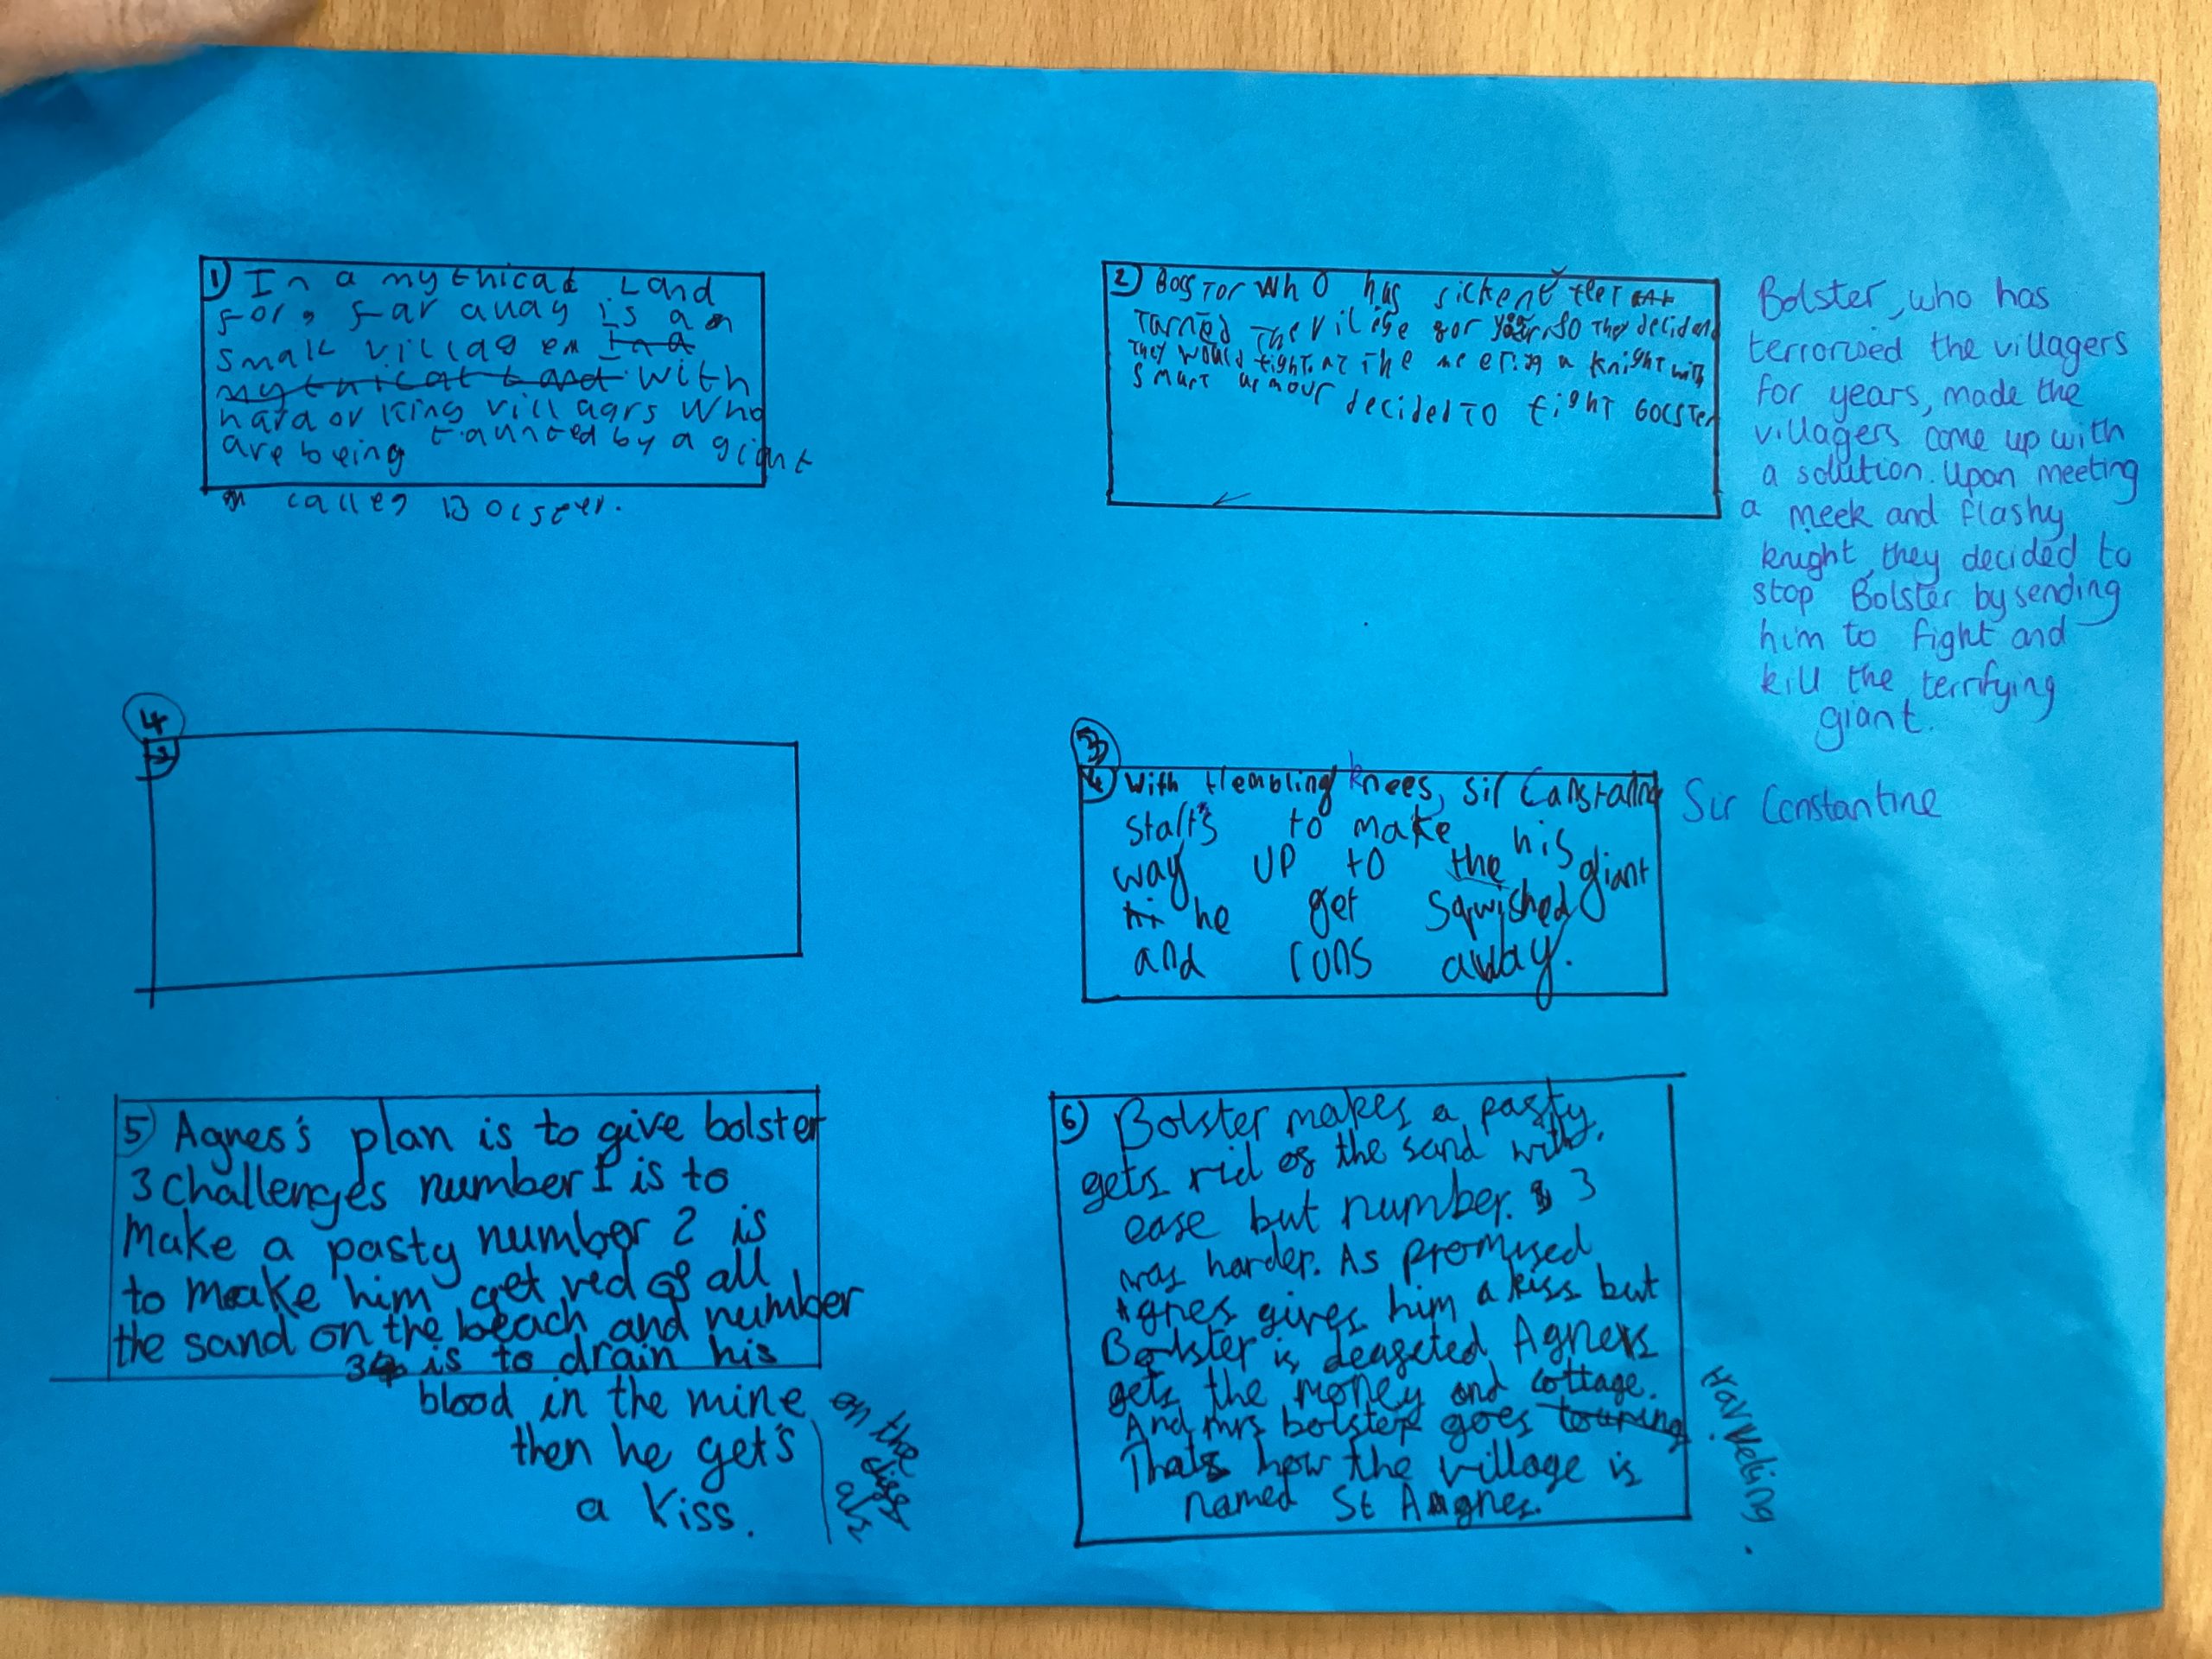 1) In a mythical Land
for, far away is a
small villag en In a
mythical Land with
hard or king villagrs who
are being taunted by a giant
called Bolster.
2) who has
the vilige for years so they decided
they would fight. At the meering a knight with
smart armour decided to fight Bolster
Bolster, who has
terrorised the villagers
for years, made the
villagers come up with
a solution. Upon meeting
a meek and flashy
knight, they decided to
stop Bolster by sending
him to fight and
kill the terrifying
giant.
4
3
3
4) With trembling knees, sir Constantine
starts to make his
way UP to the giant
he get squished
and runs away.
Sir Constantine
5) Agnes's plan is to give bolster
3 challenges number 1 is to
make a pasty number 2 is
to make him get red of all
the sand on the beach and number
3 is to drain his
blood in the mine
then he get's
a kiss.
on the
6) Bolster makes a pasty,
gets rid of the sand with
ease but number. 3
was harder. As promised
Agnes gives him a kiss but
Bolster is deageted Agness
gets the money and cottage.
And mrs bolster goes touring
travveling.
Thats how the village is
named St Agnes.